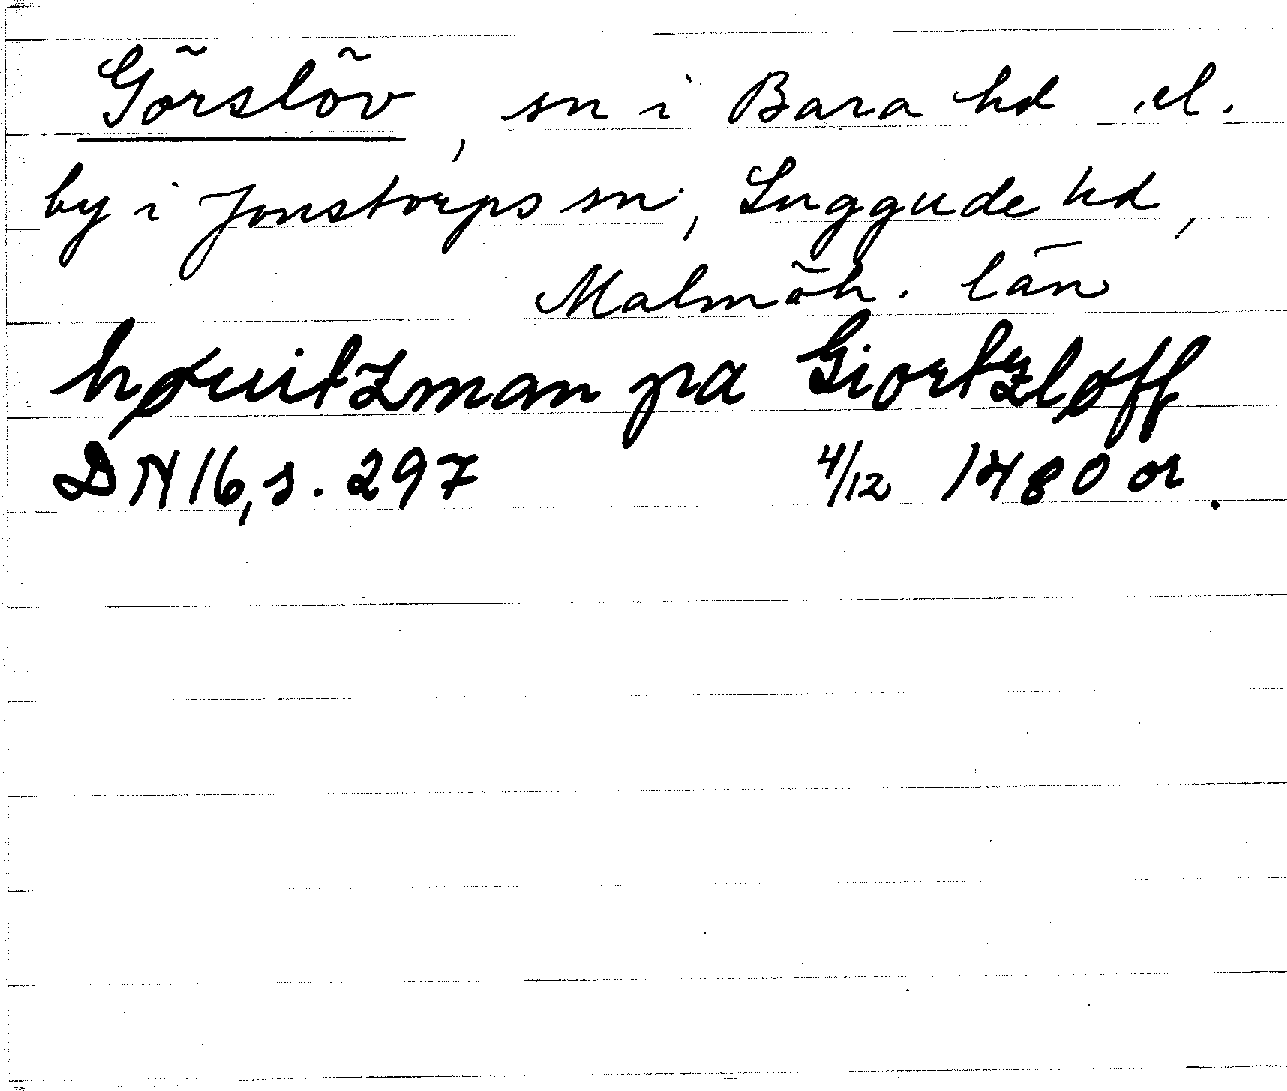 Görslöv, sn i Bara hd el.
by i Jonstorps sn, Luggude hd,
Malmöh. län
høuitzman pa Giortzløff
DN 16, s. 297 4/12 1480 or.